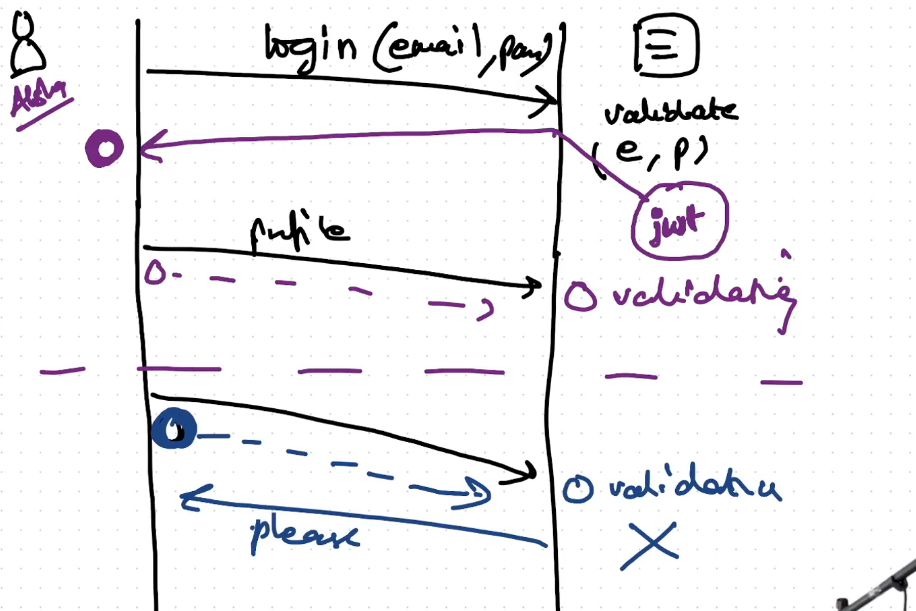 login (email, pass)
Alsha
validate
(e, p)
jwt
profile
validating
validation
please